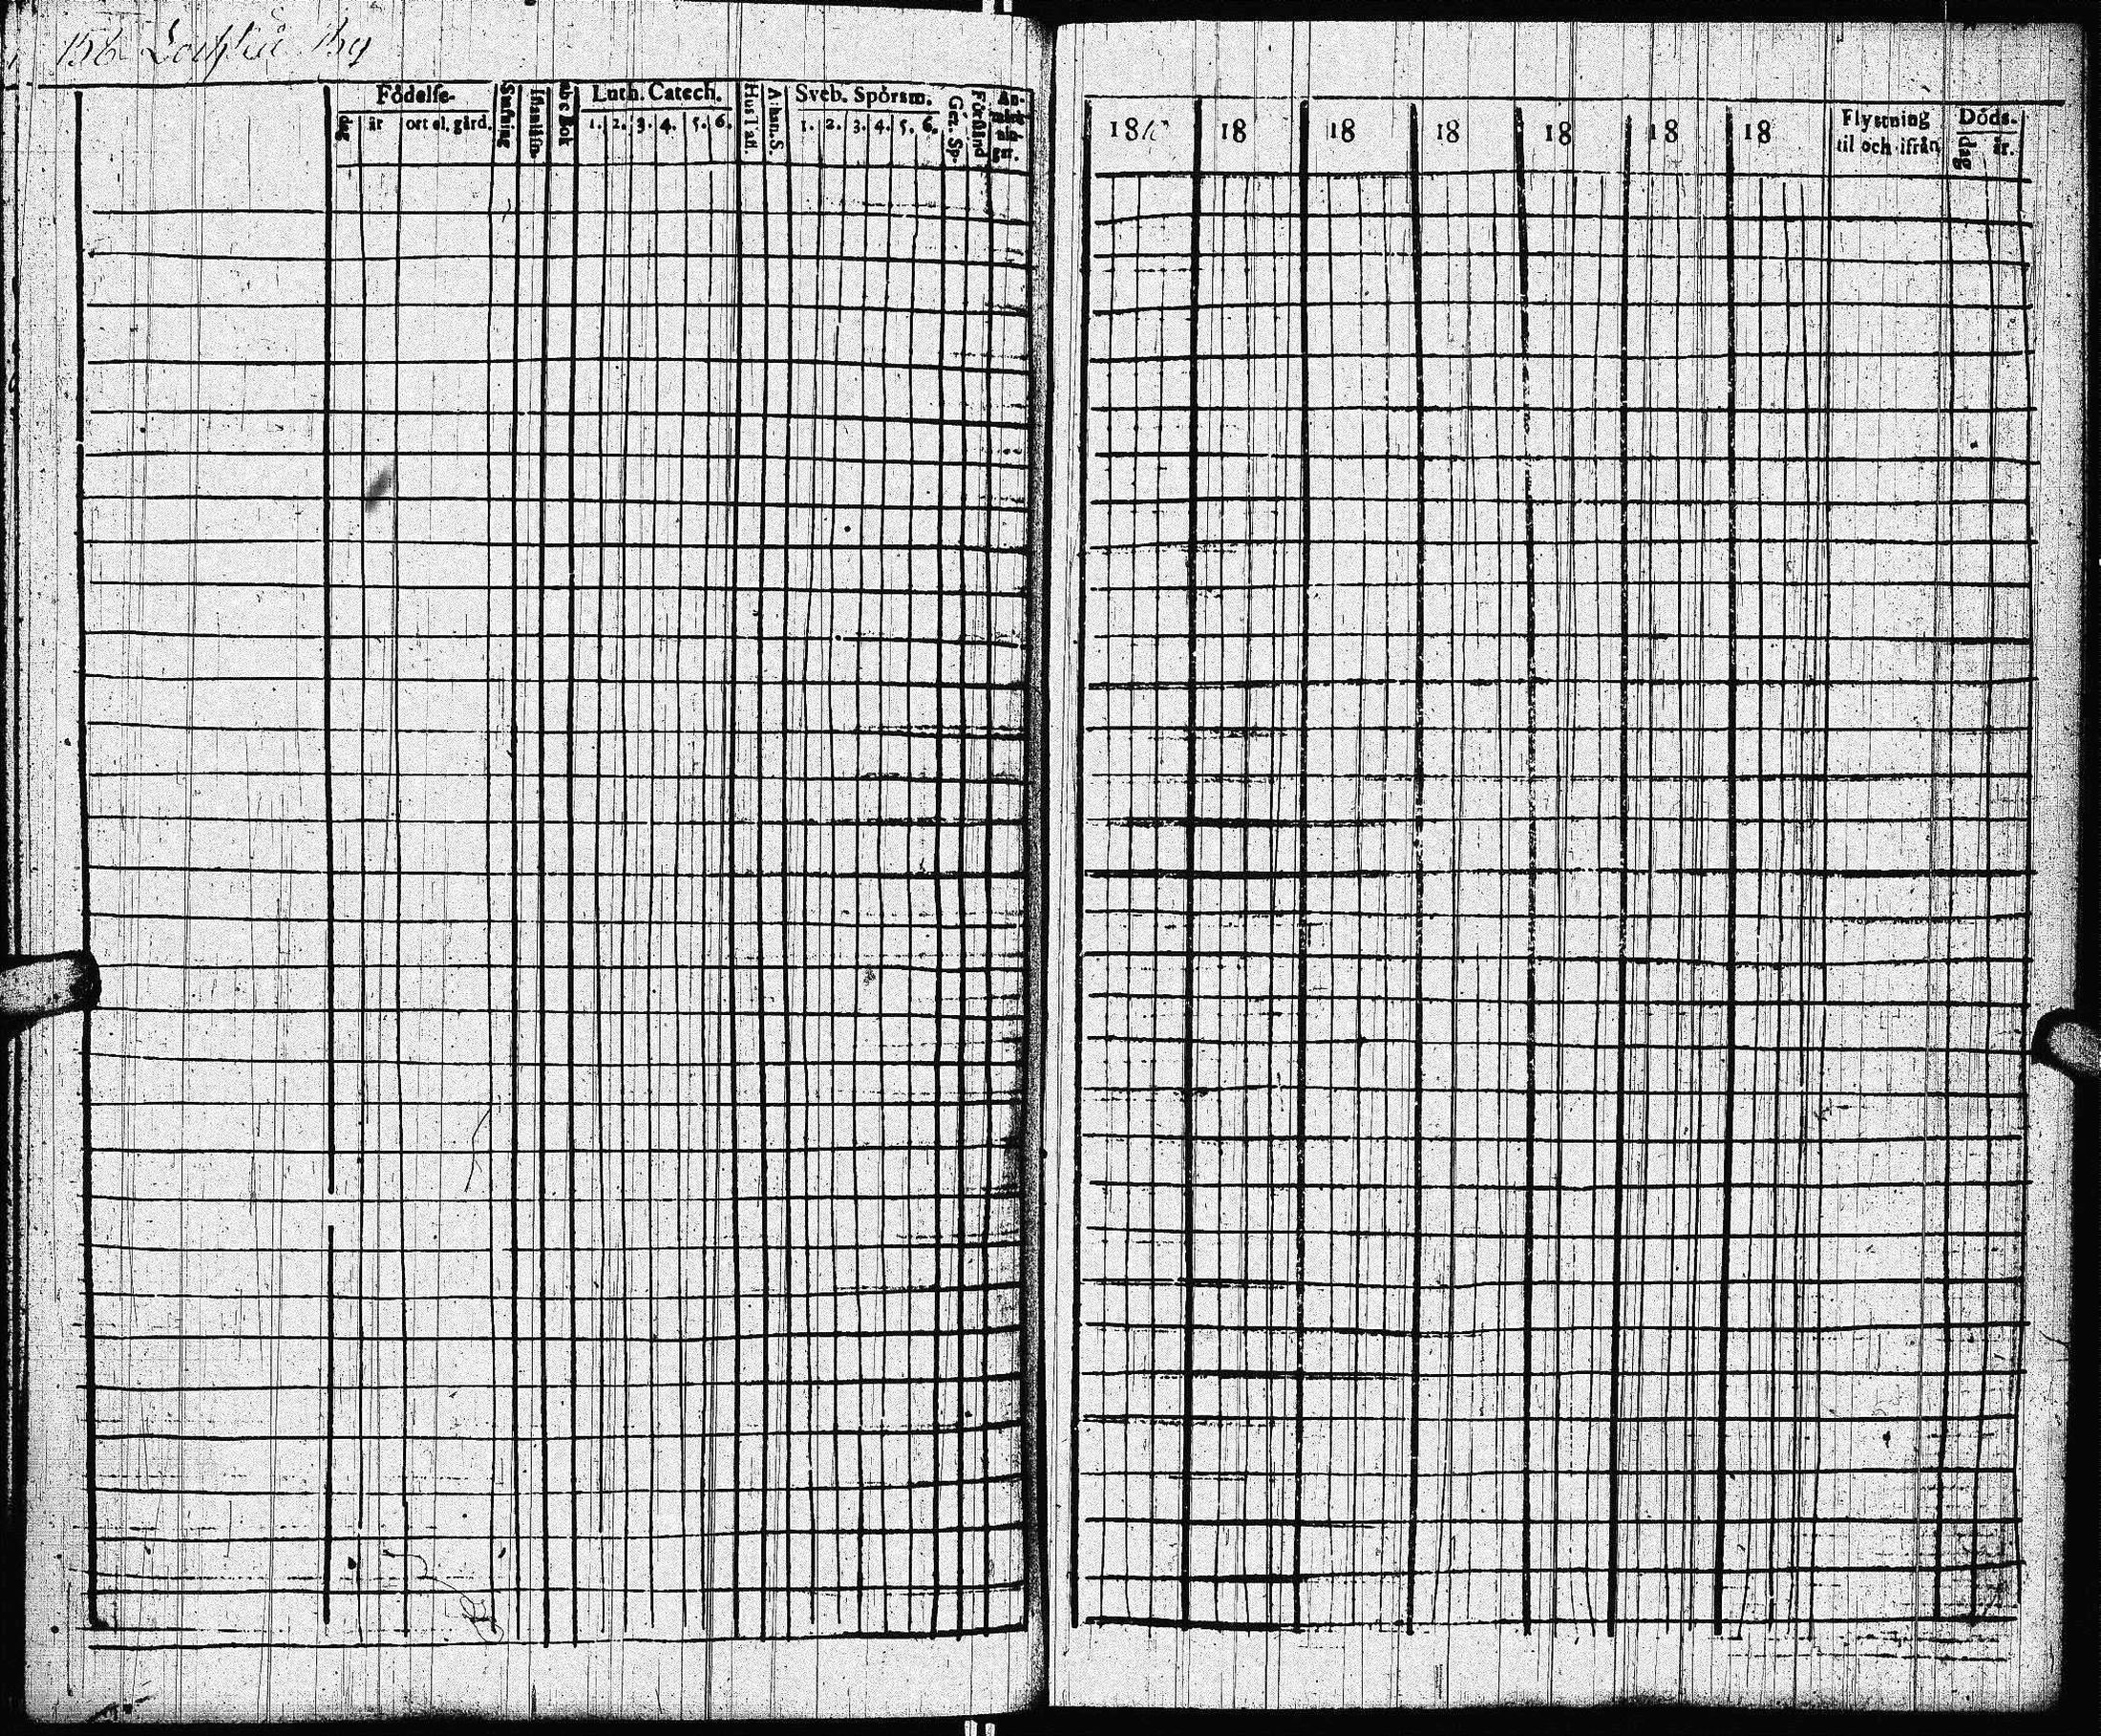 156 By
Födelse- Luth. Catech. Sveb. Spörsm.
dag år ort el. gård. Stafning abc Bok 1. 2. 3. 4. 5. 6. Hus Tafl. A:han.S. 1. 2. 3. 4. 5. 6. Gez. Sp. Förstånd An-märk-nin-gar.
18 18 18 18 18 18 18 Flyttning Döds-
til och ifrån dag år.